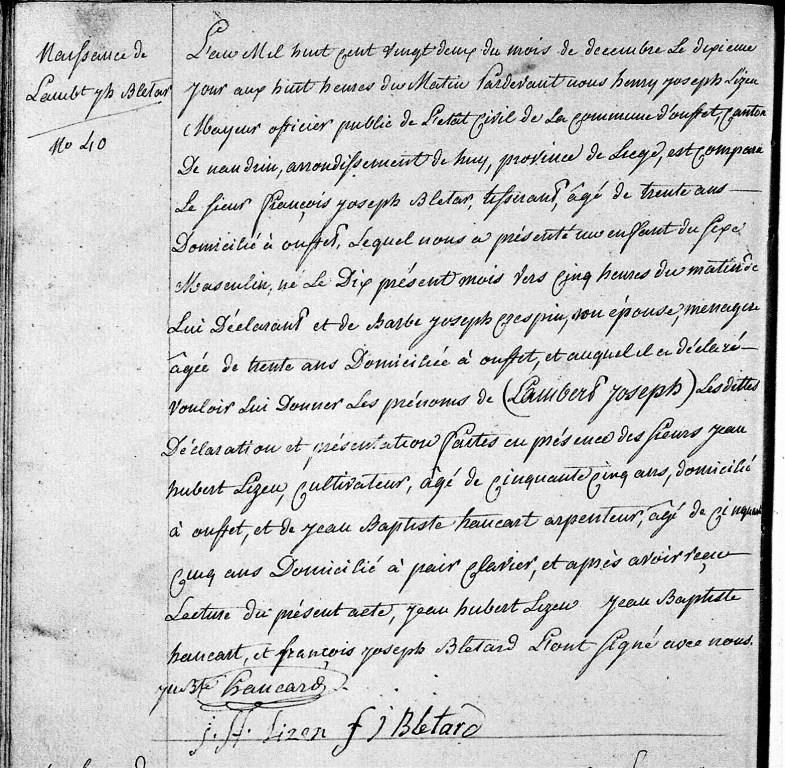 Naissance de
Lambt jh Bletar
No 40
L'an Mil huit cent vingt deux du mois de decembre Le dixieme
jour aux huit heures du Matin Pardevant nous henry joseph Lizen
Mayeur officier public de L'etat Civil de La commune d'ouffet, Canton
De nandrin, arrondissement de huy, province de Liege, est comparu
Le sieur françois joseph Bletar, tisserant, âgé de trente ans
Domicilié à ouffet, Lequel nous a présenté un enfant du sexe
Masculin, né Le Dix présent mois vers Cinq heures du matin de
Lui Déclarant et de Barbe joseph Crespin, son épouse, menagere
âgée de trente ans Domiciliée à ouffet, et auquel il a déclaré
vouloir Lui Donner Les prénoms de (Lambert joseph) Lesdittes
Déclaration et présentation faites en présence des sieurs jean
hubert Lizen, Cultivateur, âgé de Cinquante Cinq ans, domicilié
à ouffet, et de jean Baptiste haucart arpenteur, âgé de Cinquante
Cinq ans Domicilié à pair Clavier, et après avoir reçu
Lecture du présent acte, jean hubert Lizen jean Baptiste
haucart, et françois joseph Bletard L'ont signé avec nous.
jn Bte haucard
j. H. Lizen f j Bletard